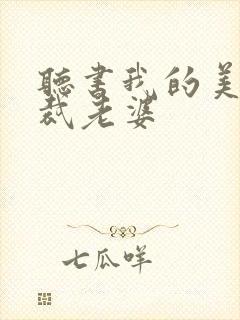 聽書我的美
裁老婆
七瓜咩